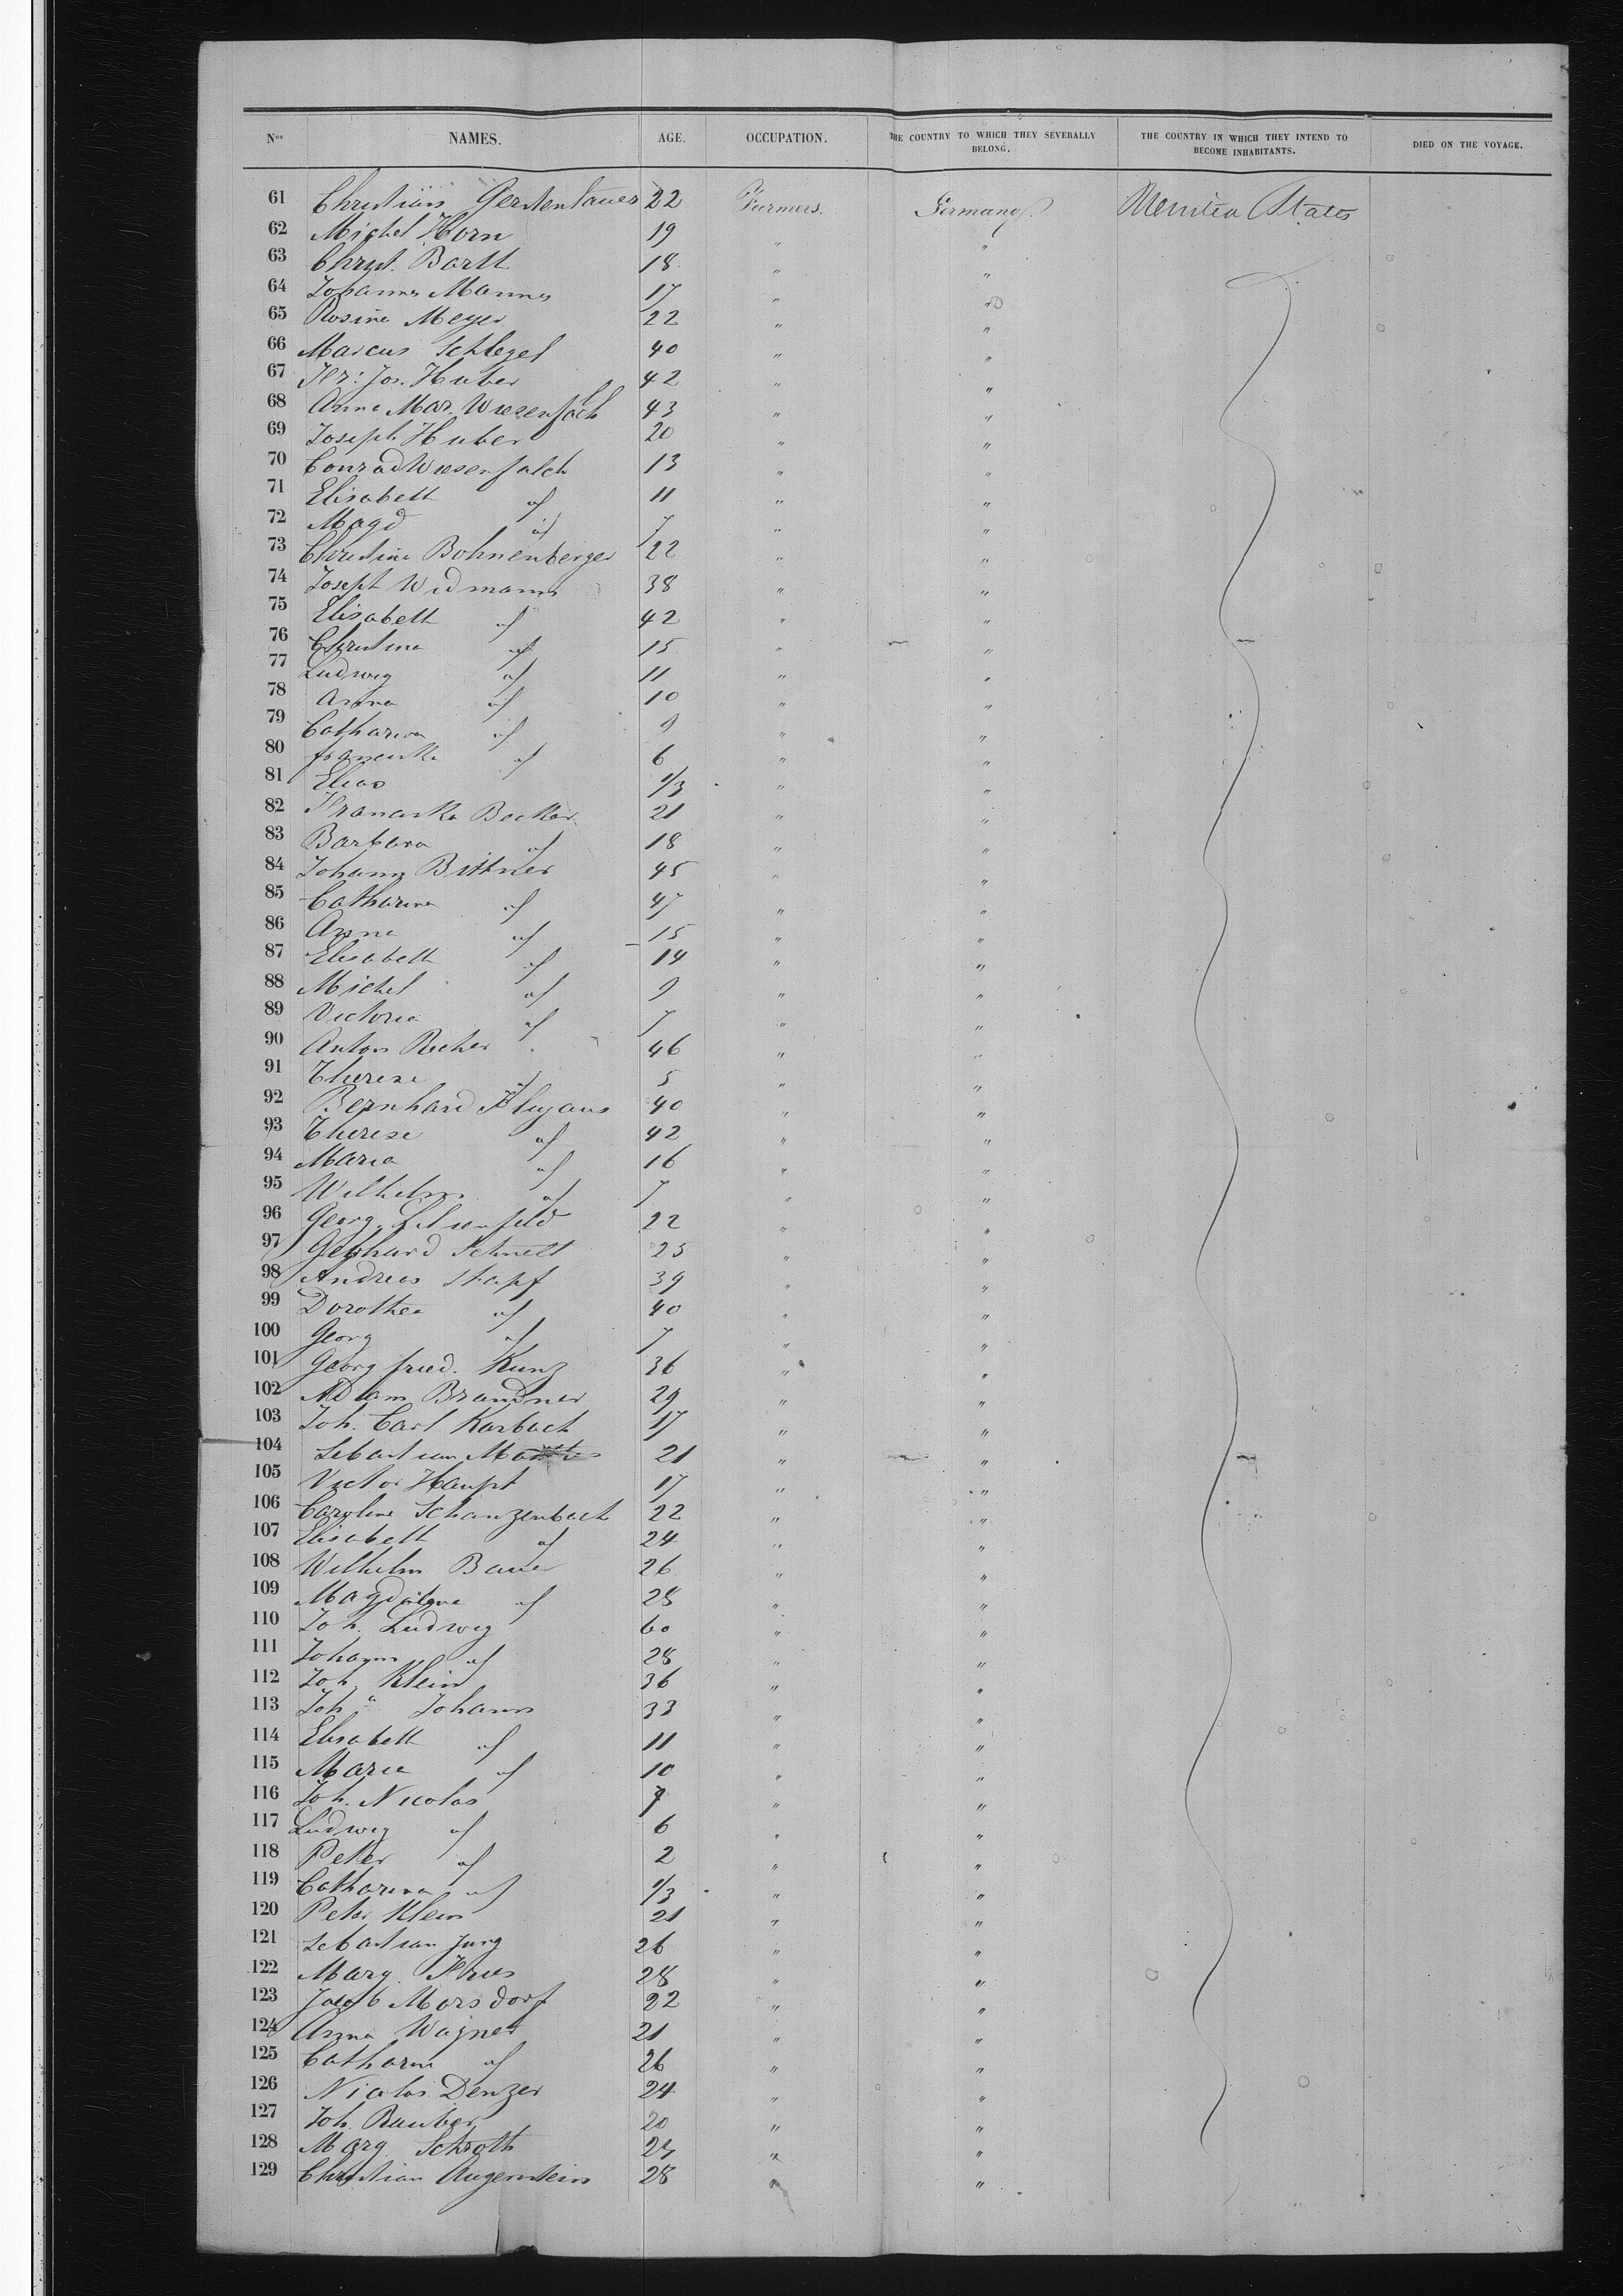 Nos NAMES. AGE. OCCUPATION. THE COUNTRY TO WHICH THEY SEVERALLY BELONG. THE COUNTRY IN WHICH THEY INTEND TO BECOME INHABITANTS. DIED ON THE VOYAGE.
61 Christian 22 Farmers. Germany. States
62 Michel Horn 19 " "
63 Christ. Barth 18 " "
64 Johannes Mannes 17 "
65 Rosine Meyer 22 " "
66 Marcus Schlegel 40 " "
67 Fr: Jos. Huber 42 " "
68 Anna Mar. 43 " "
69 Joseph Huber 20 " "
70 Conrad 13 " "
71 Elisabeth " 11 " "
72 Magd " 7 " "
73 Christine Bohnenberger 22 " "
74 Joseph Widmann 38 " "
75 Elisabeth " 42 " "
76 Christina " 15 " "
77 Ludwig " 11 " "
78 Anna " 10 " "
79 Catharina " 9 " "
80 franciska " 6 " "
81 Elias 1/3 " "
82 Franciska Becker 21 " "
83 Barbara " 18 " "
84 Johann Bittner 45 " "
85 Catharina " 47 " "
86 Anna " 15 " "
87 Elisabeth " 14 " "
88 Michel " 9 " "
89 Victoria " 7 " "
90 Anton 46 " "
91 Therese " 5 " "
92 Bernhard 40 " "
93 Therese " 42 " "
94 Maria " 16 " "
95 Wilhelm " 7 " "
96 Georg 22 " "
97 Gebhard Schnell 25 " "
98 Andreas Stapf 39 " "
99 Dorothea " 40 " "
100 Georg " 7 " "
101 Georg fried. Kunz 36 " "
102 Adam Brandner 29 " "
103 Joh. Carl Karbach 17 " "
104 Sebastian 21 " "
105 Victor Haupt 17 " "
106 Caroline Schanzenbach 22 " "
107 Elisabeth " 24 " "
108 Wilhelm Bauer 26 " "
109 Magdalena " 28 " "
110 Joh. Ludwig 60 " "
111 Johann " 28 " "
112 Joh. Klein 36 " "
113 Joh " Johann 33 " "
114 Elisabeth " 11 " "
115 Marie " 10 " "
116 Joh. Nicolas 7 " "
117 Ludwig " 6 " "
118 Peter " 2 " "
119 Catharina " 1/3 " "
120 Peter Klein 21 " "
121 Sebastian Jung 26 " "
122 Marg. Fries 28 " "
123 Jacob Morsdorf 22 " "
124 Anna Wagner 21 " "
125 Catharine " 26 " "
126 Nicolas Denzer 24 " "
127 Joh. Rauber 20 " "
128 Marg Schroth " "
129 Christian Augenstein 28 " "